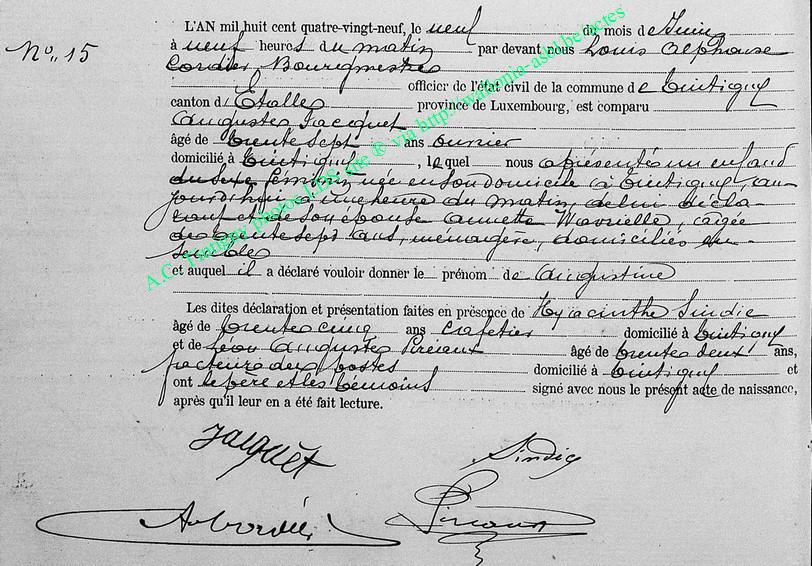 L'AN mil huit cent quatre-vingt-neuf, le neuf du mois de Juin
No. 15
à neuf heures du matin par devant nous Louis Alphonse
Cordier, Bourgmestre
officier de l'état civil de la commune de Tintigny
canton d'Etalle province de Luxembourg, est comparu
Auguste Jacquet
âgé de trente sept ans ouvrier
domicilié à Tintigny, lequel nous a présenté un enfant
du sexe féminin, née en son domicile à Tintigny, au-
jourd'hui à une heure du matin, de lui décla-
rant et de son épouse Annette Wavrelle, agée
de trente sept ans, ménagère, domiciliés en-
semble
et auquel il a déclaré vouloir donner le prénom de Augustine
Les dites déclaration et présentation faites en présence de Hyacinthe Sindic
âgé de trente cinq ans cafetier domicilié à Tintigny
et de Léon Auguste âgé de trente deux ans,
facteur des postes domicilié à Tintigny et
ont le père et les témoins signé avec nous le présent acte de naissance,
après qu'il leur en a été fait lecture.
Jacquet
Sindic
A Cordier
A.C. Tintigny photos LDS site ® via http://wallonia-asbl.be/actes